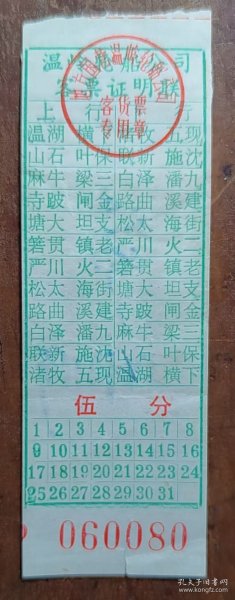 温岭轮船公司
客票证明联
客货票
专用章
上行 下行
温湖 横下 渚牧 五现
山石 叶保 联新 施沈
麻牛 梁三 白泽 潘九
寺陂 闸金 路曲 溪建
塘大 坦支 松太 海街
箬贯 镇老 严川 火二
严川 火二 箬贯 镇老
松太 海街 塘大 坦支
路曲 溪建 寺陂 闸金
白泽 潘九 麻牛 梁三
联新 施沈 山石 叶保
渚牧 五现 温湖 横下
伍分
1 2 3 4 5 6 7 8
9 10 11 12 13 14 15 16
17 18 19 20 21 22 23 24
25 26 27 28 29 30 31
060080
孔夫子旧书网